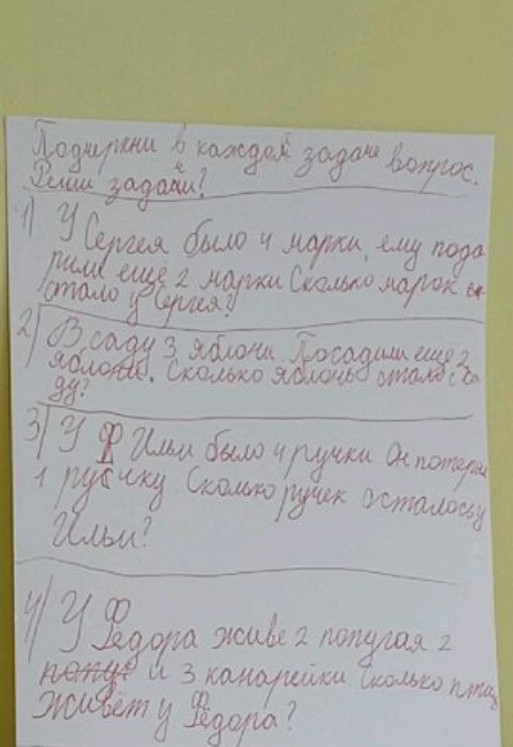 Подчеркни в каждой задаче вопрос.
Реши задачи!
1) У Сергея было 4 марки, ему пода
рили ещё 2 марки Сколько марок
стало у Сергея?
2) В саду 3 яблони. Посадили еще 2
яблони. Сколько яблонь стало в са
ду?
3) У Ильи было 4 ручки Он потерял
1 ручку Сколько ручек осталось у
Ильи?
4) У Федора живе 2 попугая 2
и 3 канарейки Сколько птиц
живёт у Фёдора?